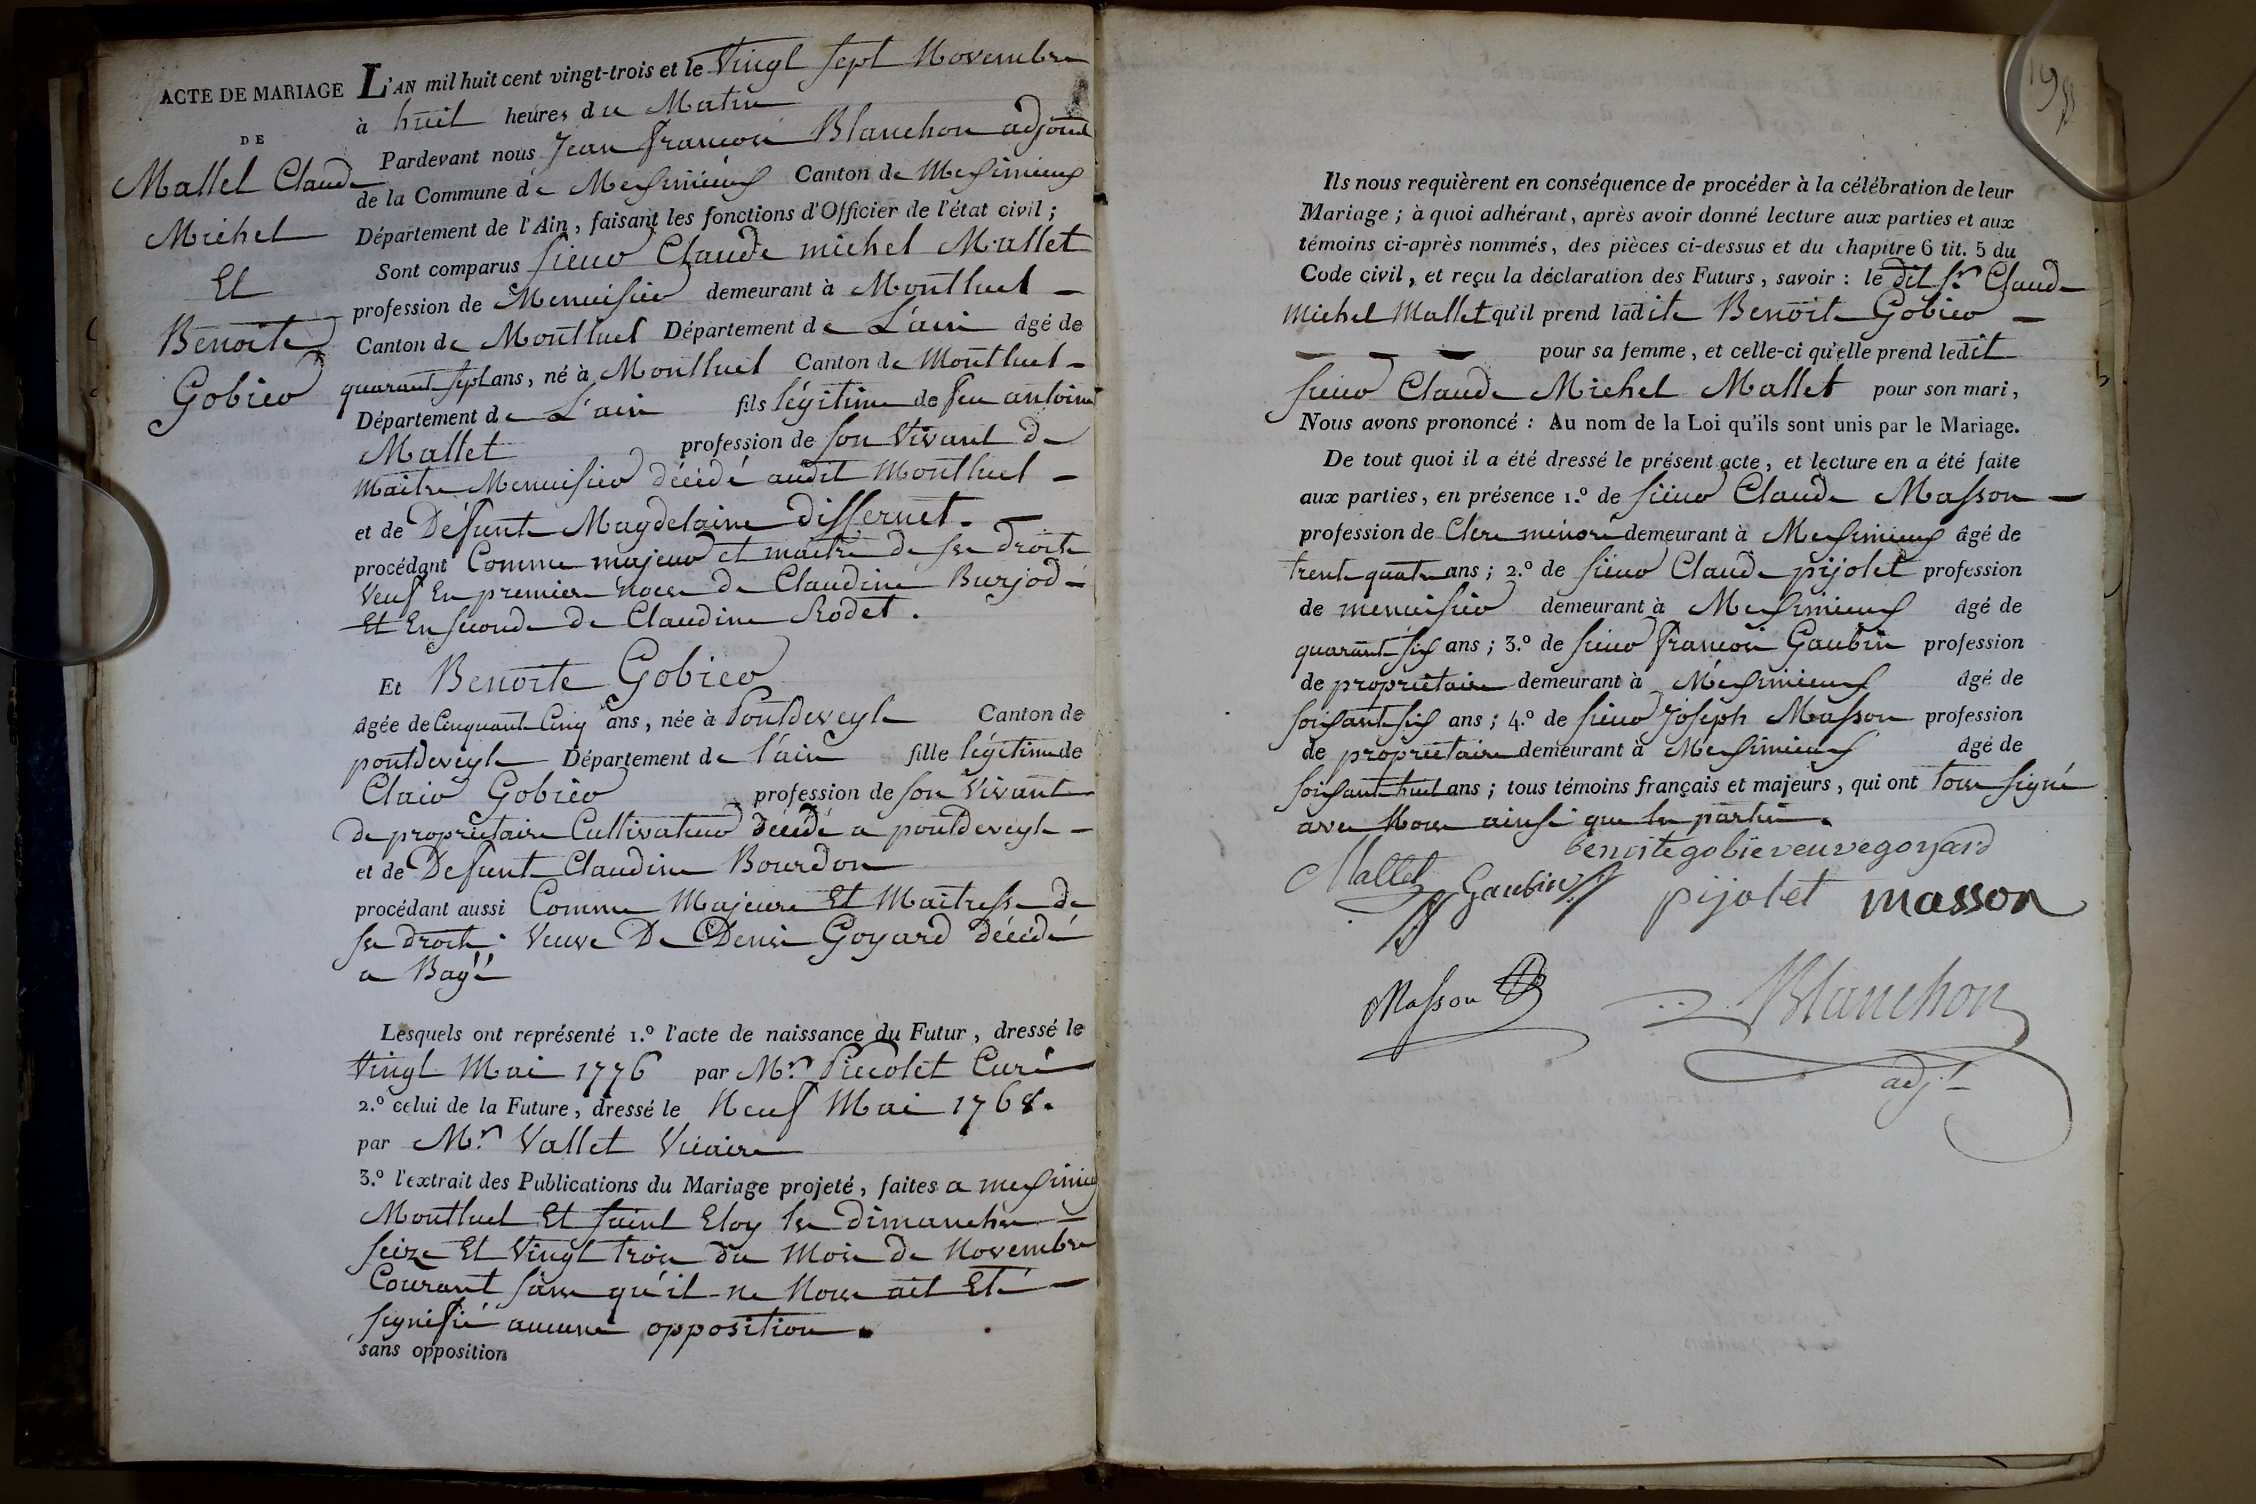 ACTE DE MARIAGE
DE
Mallet Claude
Michel
Et
Benoite
Gobier
L'AN mil huit cent vingt-trois et le Vingt Sept Novembre
à huit heures du Matin
Pardevant nous Jean francois Blanchon adjoint
de la Commune de Meximieux Canton de Meximieux
Département de l'Ain, faisant les fonctions d'Officier de l'état civil ;
Sont comparus sieur Claude michel Mallet
profession de Menuisier demeurant à Montluel
Canton de Montluel Département de L'ain âgé de
quarante sept ans, né à Montluel Canton de Montluel
Département de L'ain fils légitime de feu antoine
Mallet profession de son Vivant de
Maitre Menuisier décédé audit Montluel
et de Défunte Magdelaine Differnet.
procédant Comme majeur et maitre de ses droits
Veuf En premier Noces de Claudine Burjod
Et En seconde de Claudine Rodet.
Et Benoite Gobier
âgée de Cinquante Cinq ans, née à Pontdeveyle Canton de
pontdeveyle Département de l'ain fille légitime de
Clair Gobier profession de son Vivant
de propriétaire Cultivateur décédé a pontdeveyle
et de Defunte Claudine Bourdon
procédant aussi Comme Majeure Et Maitresse de
ses droits. Veuve De Denis Goyard décédé
a Bagé
Lesquels ont représenté 1.º l'acte de naissance du Futur, dressé le
Vingt Mai 1776 par Mr. Piccolet Curé
2.º celui de la Future, dressé le Neuf Mai 1768.
par Mr. Vallet Vicaire
3.º l'extrait des Publications du Mariage projeté, faites a meximieux
Montluel Et saint Eloy les dimanches
seize Et Vingt trois du Mois de Novembre
Courant sans qu'il ne Nous ait Eté
signifié aucune opposition.
sans opposition
Ils nous requièrent en conséquence de procéder à la célébration de leur
Mariage ; à quoi adhérant, après avoir donné lecture aux parties et aux
témoins ci-après nommés, des pièces ci-dessus et du chapitre 6 tit. 5 du
Code civil, et reçu la déclaration des Futurs, savoir : le dit Sr. Claude
Michel Mallet qu'il prend ladite Benoite Gobier
pour sa femme, et celle-ci qu'elle prend ledit
sieur Claude Michel Mallet pour son mari,
Nous avons prononcé : Au nom de la Loi qu'ils sont unis par le Mariage.
De tout quoi il a été dressé le présent acte, et lecture en a été faite
aux parties, en présence 1.º de sieur Claude Masson
profession de Clerc minoré demeurant à Meximieux âgé de
trente quatre ans ; 2.º de sieur Claude pijolet profession
de menuisier demeurant à Meximieux âgé de
quarante six ans ; 3.º de sieur francois Gaubin profession
de propriétaire demeurant à Meximieux âgé de
soixante six ans ; 4.º de sieur Joseph Masson profession
de propriétaire demeurant à Meximieux âgé de
soixante huit ans ; tous témoins français et majeurs, qui ont tous signé
avec Nous ainsi que les parties.
benoitegobieveuvegoyard
Mallet Gaubin pijolet masson
Masson Blanchon
adjt